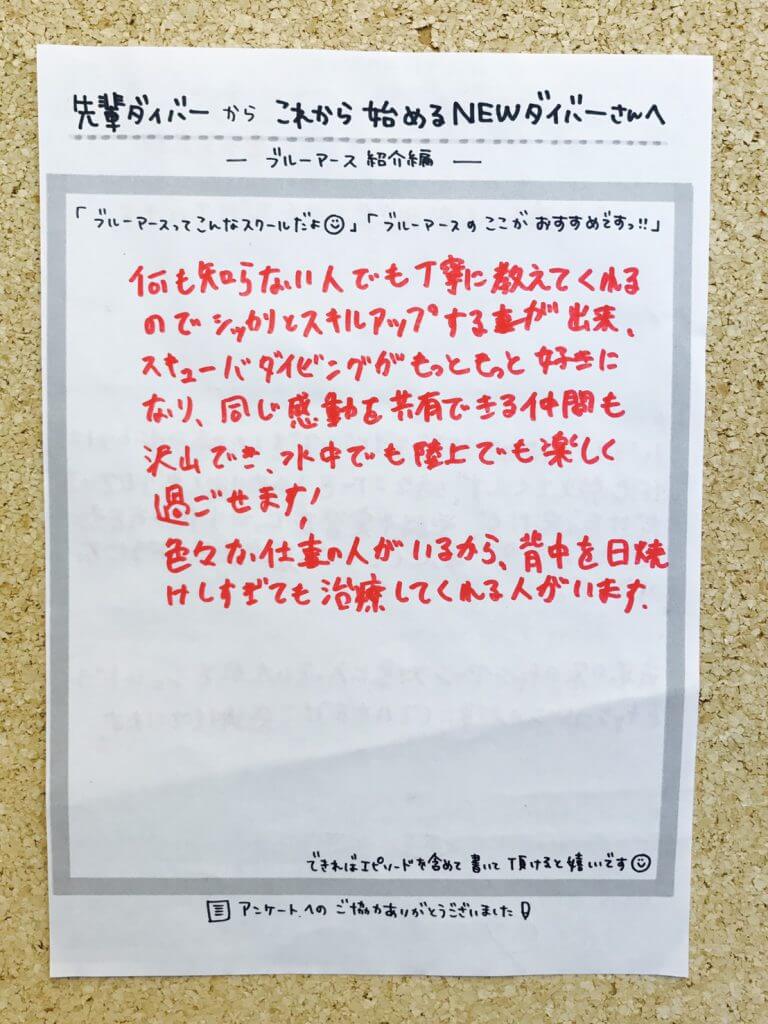 先輩ダイバーから これから始めるNEWダイバーさんへ
― ブルーアース紹介編 ―
「ブルーアースってこんなスクールだよ☺」「ブルーアースのここがおすすめですっ!!」
何も知らない人でも丁寧に教えてくれる
のでシッカリとスキルアップする事が出来、
スキューバダイビングがもっともっと好きに
なり、同じ感動を共有できる仲間も
沢山でき、水中でも陸上でも楽しく
過ごせます!
色々な仕事の人がいるから、背中を日焼
けしすぎても治療してくれる人がいます.
できればエピソードを含めて書いて頂けると嬉しいです☺
アンケートへのご協力ありがとうございました